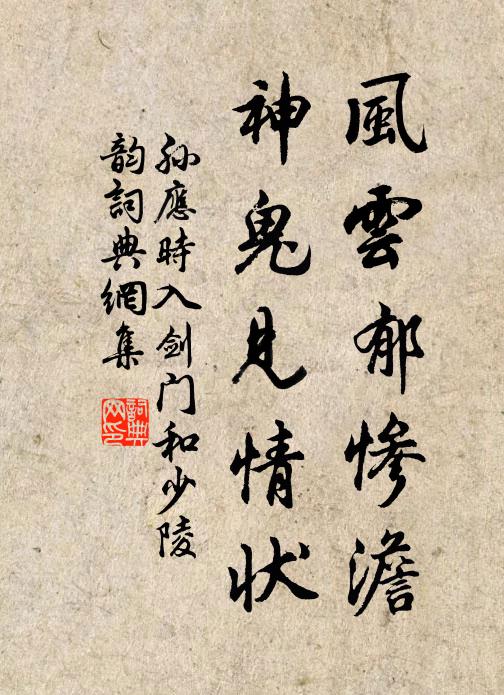 風雲郁慘澹
神鬼見情狀
孙應時入劍门和少陵
韵詞典網集
詞典
网印